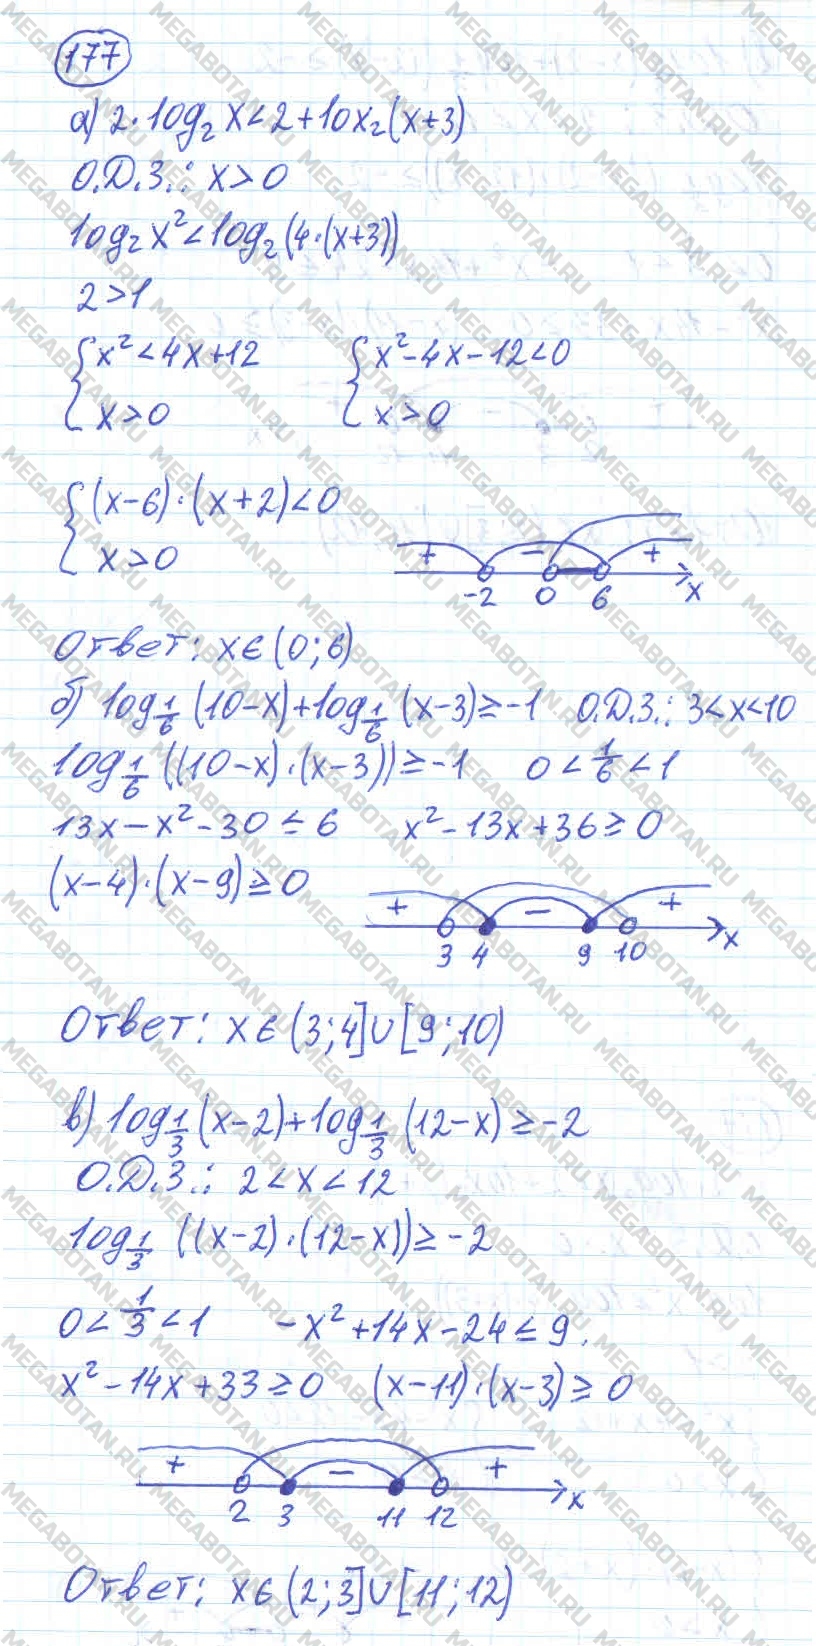 177
а) 2·log₂ x < 2 + lox₂ (x+3)
О.Д.З.: x > 0
log₂ x² < log₂ (4·(x+3))
2 > 1
{ x² < 4x + 12    { x² - 4x - 12 < 0
{ x > 0    { x > 0
{ (x-6)·(x+2) < 0
{ x > 0
+ - +
-2 0 6 x
Ответ: x ∈ (0; 6)
б) log 1/6 (10-x) + log 1/6 (x-3) ≥ -1   О.Д.З.: 3 < x < 10
log 1/6 ((10-x)·(x-3)) ≥ -1   0 < 1/6 < 1
13x - x² - 30 ≤ 6   x² - 13x + 36 ≥ 0
(x-4)·(x-9) ≥ 0
+ - +
3 4 9 10 x
Ответ: x ∈ (3; 4] ∪ [9; 10)
в) log 1/3 (x-2) + log 1/3 (12-x) ≥ -2
О.Д.З.: 2 < x < 12
log 1/3 ((x-2)·(12-x)) ≥ -2
0 < 1/3 < 1   -x² + 14x - 24 ≤ 9.
x² - 14x + 33 ≥ 0   (x-11)·(x-3) ≥ 0
+ - +
2 3 11 12 x
Ответ: x ∈ (2; 3] ∪ [11; 12)
MEGABOTAN.RU